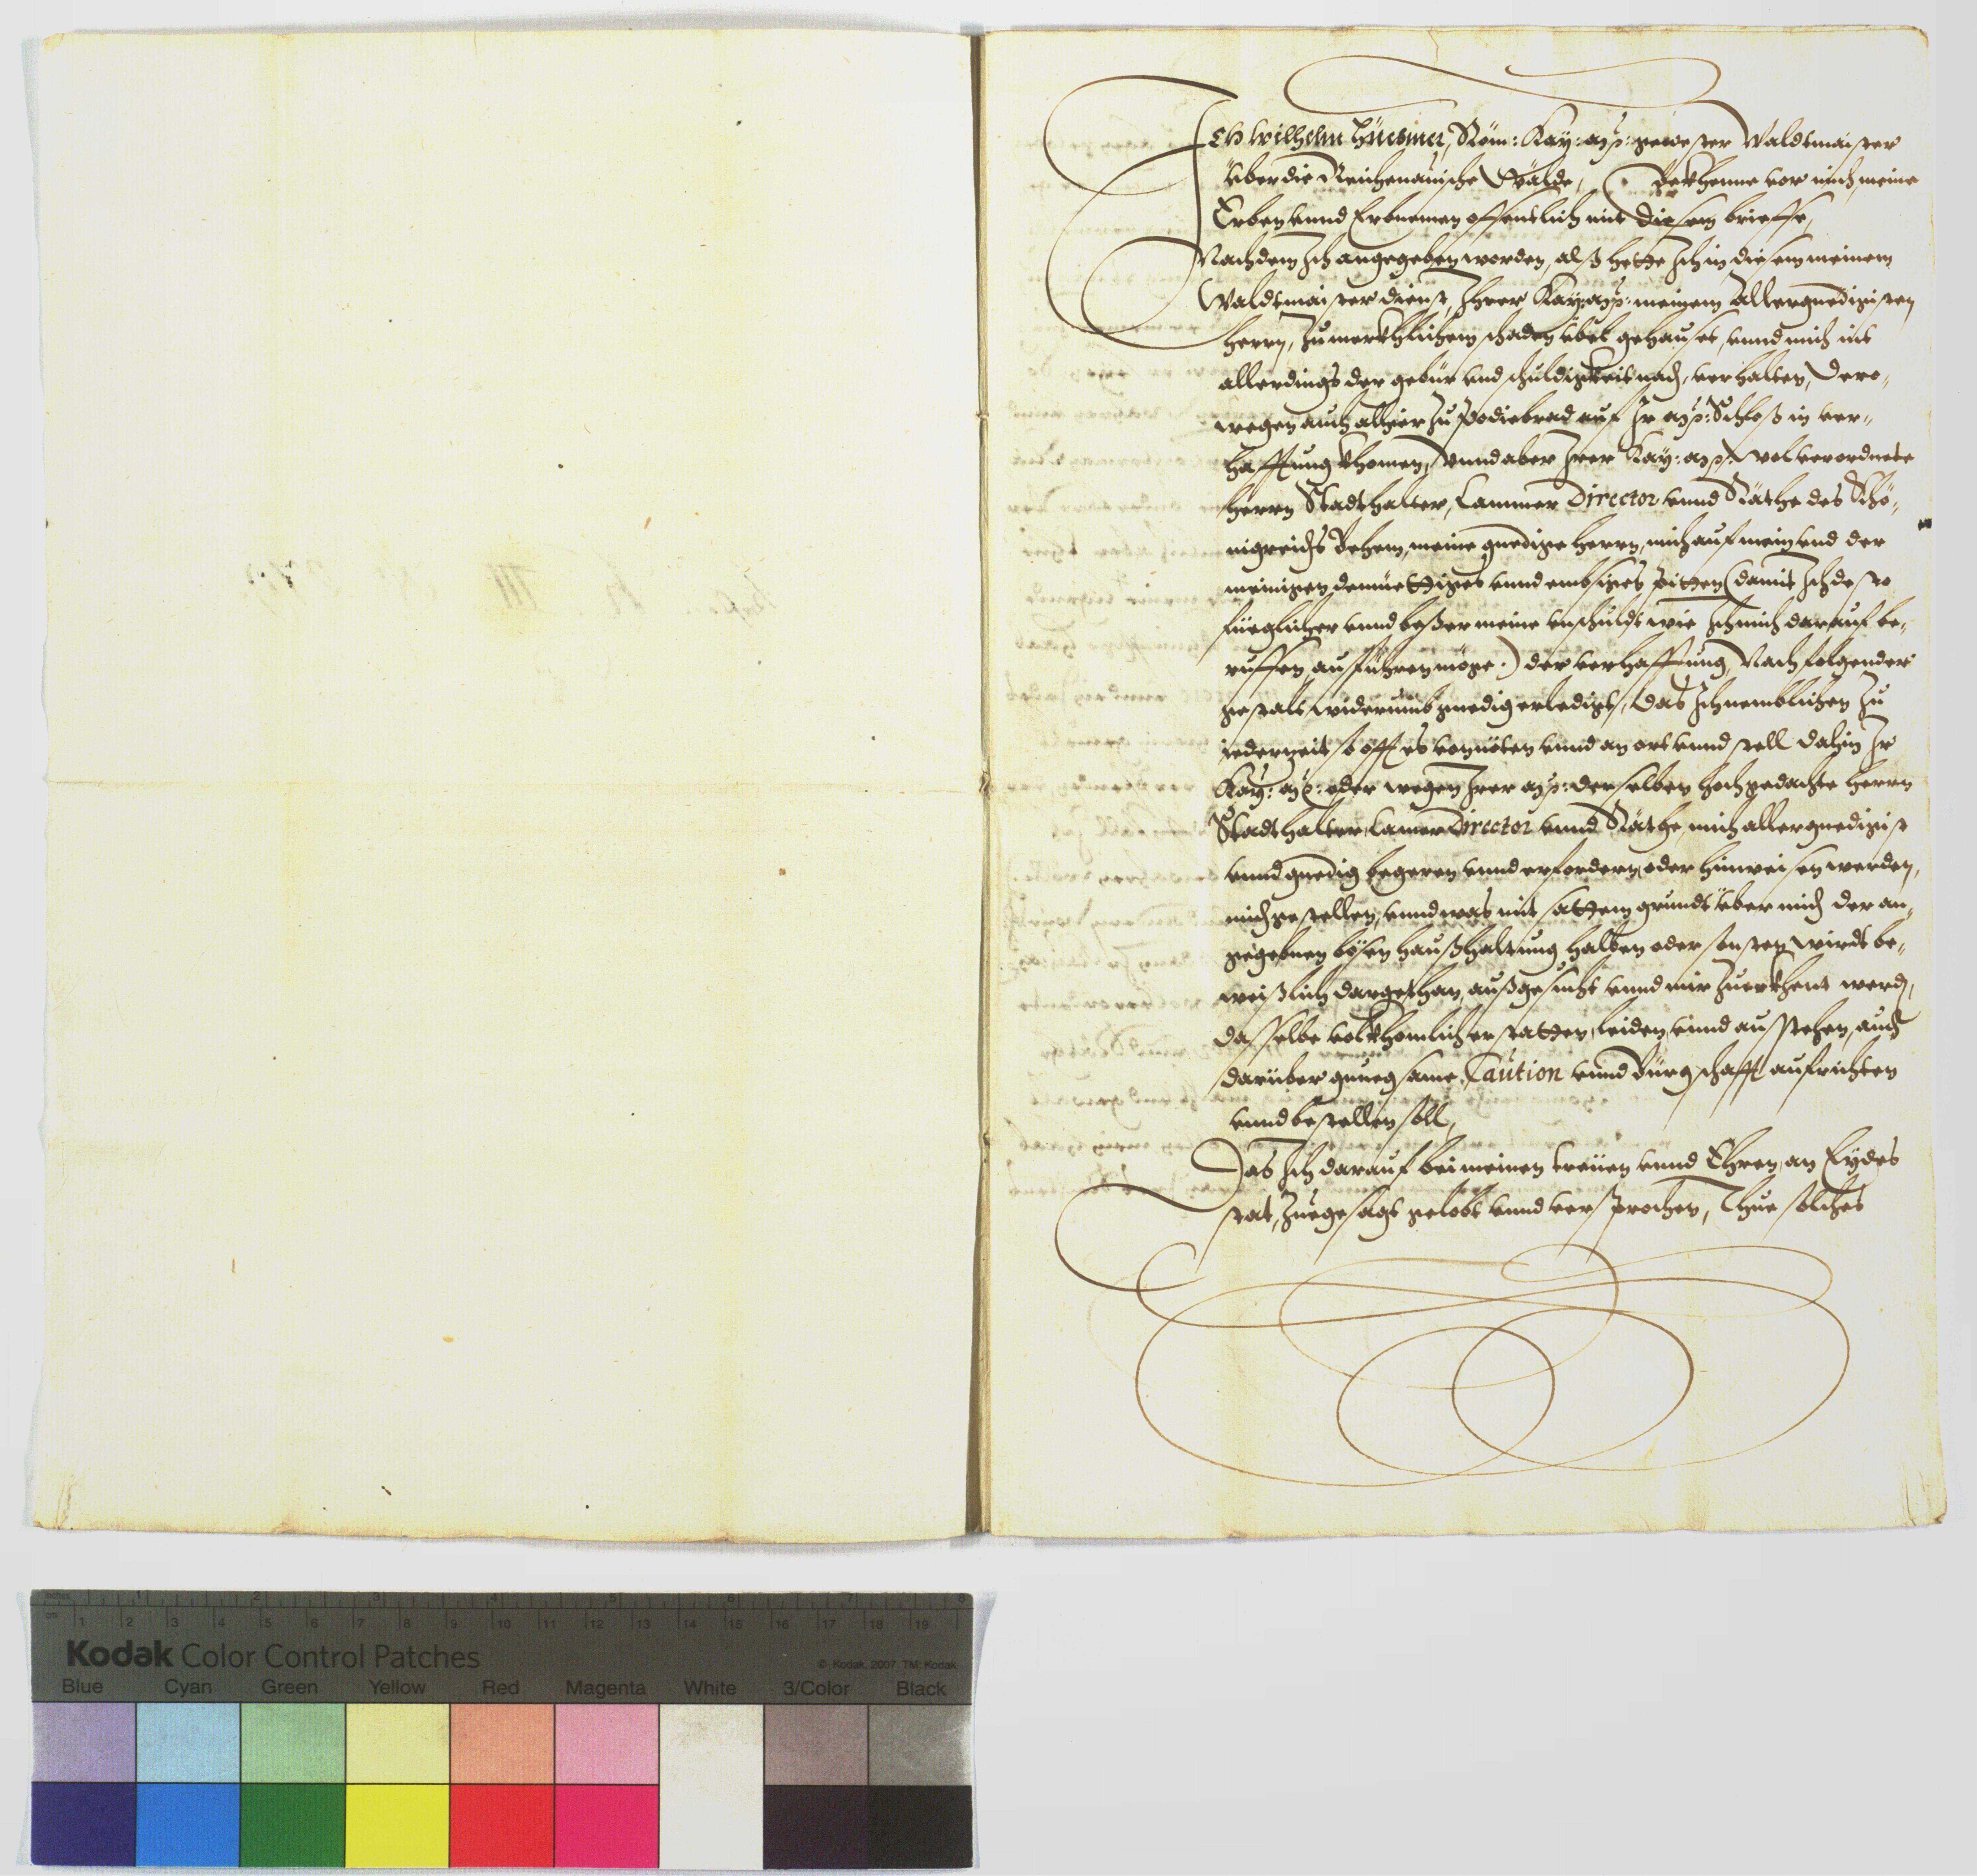 Ich Wilhelm Hüebmer, Röm: Kay: Mtt: gewester Waldtmaister
über die Reichenauische Wälde, Bekhenne vor mich, meine
Erben vnnd Erbnemen offentlich mit diesem brieffe,
Nachdem Ich angegeben worden, alß hette Ich in diesem meinem
Waldtmaister dienst, Ihrer Kay: Mtt: meinem Allergnedigisten
Herrn, zu merkhlichem schaden übel gehauset, vnnd mich nit
allerdings der gebür vnd schuldigkeit nach, verhalten, Dero-
wegen auch alhier zu Podiebrad auf Ir Mtt: Schloß in ver-
hafftung khomen, Vnnd aber Irer Kay: Mtt: wolverordnete
Herrn Stadthalter, Cammer Director vnnd Räthe des Khö-
nigreichs Behem, meine gnedige Herrn, mich auf mein vnd der
meinigen demüettiges vnnd embsiges bitten (damit Ich desto
füeglicher vnnd beßer meine vnschuldt wie Ich mich darauf be-
ruffen ausführen möge.) der verhafftung Nachfolgender
gestalt widerumb gnedig erledigt, Das Ich nemblichen zu
iederzeit so offt es vonnöten vnnd an ort vnnd stell dahin Ir
Kay: Mtt: oder wegen Irer Mtt: derselben hochgedachte Herrn
Stadthalter, Camer Director vnnd Räthe, mich allergnedigist
vnnd gnedig begeren vnnd erfordern, oder hinweisen werden,
mich gestellen, vnnd was mit sattem grundt über mich der an-
gegebnen bösen haußhaltung halben oder sonsten wirdt be-
weißlich dargethan, außgesucht vnnd mir zuerkhent werd,
dasselbe volkhomlich erstatten, leiden, vnnd ausstehen, auch
darüber gnuegsame Caution vnnd Bürgschafft aufrichten
vnnd bestellen soll,
Das Ich darauf bei meinen treüen vnnd Ehren, an Eydes
stat, zuegesagt gelobt vnnd versprochen, Thue solches
inches
cm 1 2 3 4 5 6 7 8 9 10 11 12 13 14 15 16 17 18 19
Kodak Color Control Patches
© Kodak, 2007 TM: Kodak
Blue Cyan Green Yellow Red Magenta White 3/Color Black